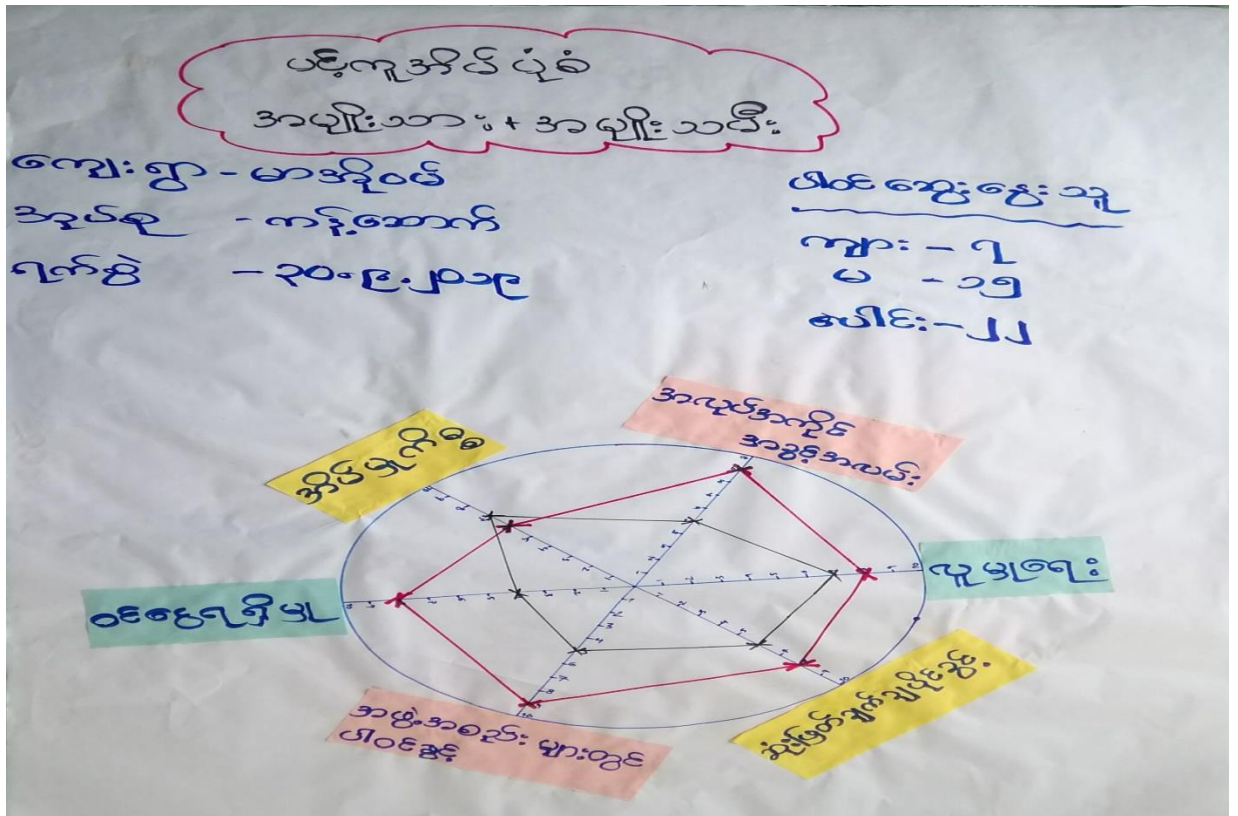 ပင့်ကူအိမ်ပုံစံ
အမျိုးသား + အမျိုးသမီး
ကျေးရွာ - မာအိုဝမ်
အုပ်စု - ကန့်ဆောက်
ရက်စွဲ - ၃၀.၉.၂၀၁၉
ပါဝင်ဆွေးနွေးသူ
ကျား - ၇
မ - ၁၅
ပေါင်း - ၂၂
အလုပ်အကိုင်
အခွင့်အလမ်း
အိမ်မှုကိစ္စ
လူမှုရေး
ဝင်ငွေရရှိမှု
ဆုံးဖြတ်ချက်ချပိုင်ခွင့်
အဖွဲ့အစည်းများတွင်
ပါဝင်ခွင့်